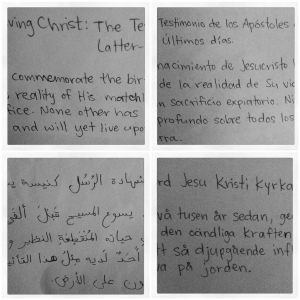 ving Christ: The Te
Latter-
commemorate the bir
reality of His matchl
fice. None other has
and will yet live upo
Testimonio de los Apóstoles
últimos días.
nacimiento de Jesucristo h
de la realidad de Su vid
n sacrificio expiatorio. Ni
profundo sobre todos los
rra.
شهادة الرُّسُل كنيسة ي
يسوع المسيح قبل ألفي
حياته المُنقطِعة النظير و
أحَدٌ لديه مِثل هذا التأثي
ون على الأرض.
rd Jesu Kristi Kyrka
vå tusen år sedan, ge
den oändliga kraften
t så djupgående inf
va på jorden.